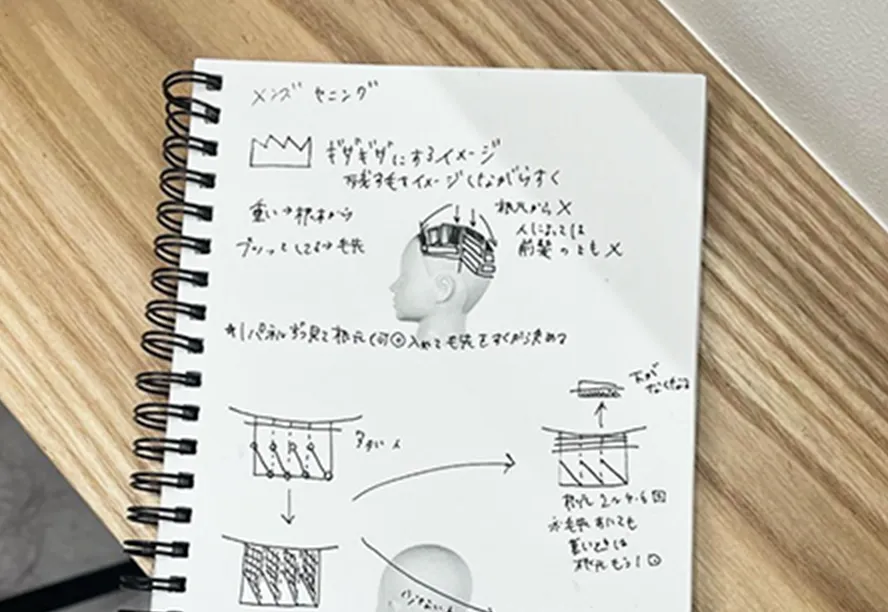 メンズ セニング
ギザギザにするイメージ
残す毛をイメージしながらすく
重い→根本から
根元から×
人によっては
前髪のとも×
プツッとしてる→毛先
*1パネルずつ見て根元に何入れて毛先をすくか決める
下が
なくなる
多い人
根元2〜4.6回
※毛先すいても
重いときは
根元もう1
少ない人